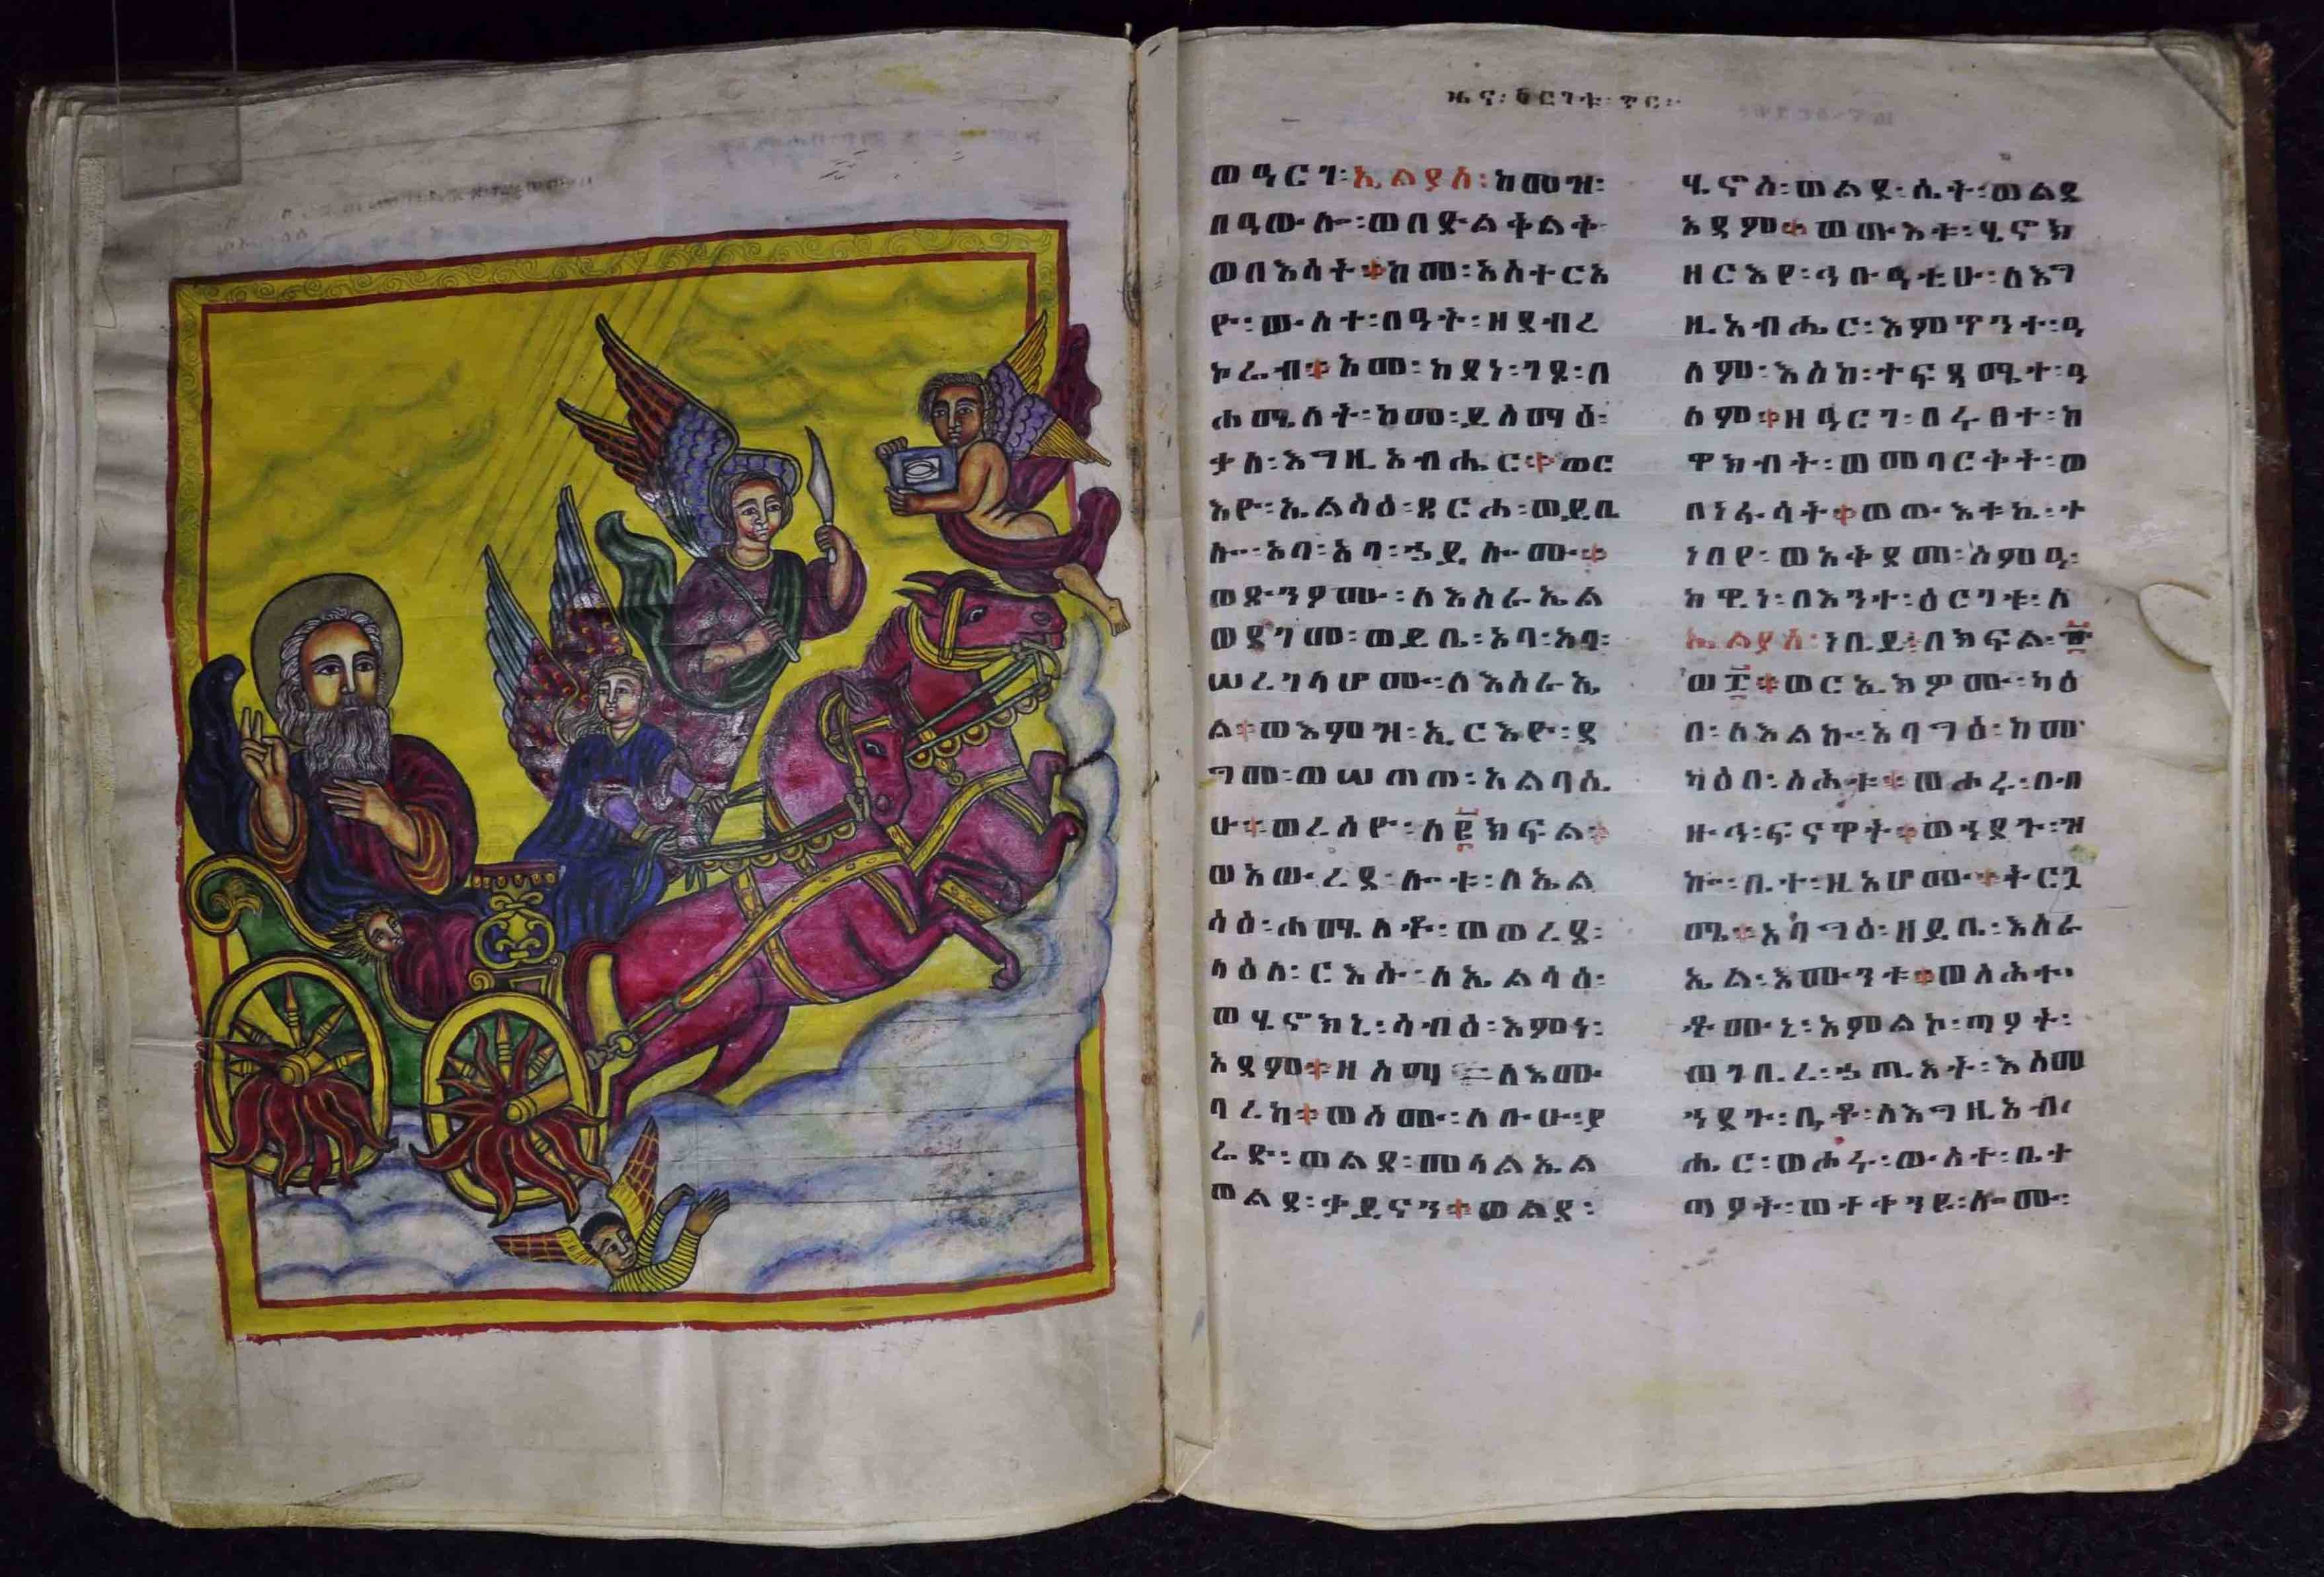 ዜና፡ ዕርገቱ፡ ጥር፡
ወዓርገ፡ኢልያስ፡ከመዝ፡
በዓውሎ፡ወበድልቅልቅ
ወበእሳት፨ከመ፡አስተርአ
ዮ፡ውስተ፡በዓት፡ዘደብረ
ኮሬብ፨አመ፡ከደነ፡ገጹ፡በ
ሐሜለት፡ከመ፡ይስማዕ፡
ቃለ፡እግዚአብሔር፨ወር
እዮ፡ኤልሳዕ፡ጸርሐ፡ወይቤ
ሎ፡አባ፡አባ፡ኃይሎሙ፨
ወጽንዖሙ፡ለእስራኤል
ወደገመ፡ወይቤ፡አባ፡አባ፡
ሠረገላሆሙ፡ለእስራኤ
ል፨ወእምዝ፡ኢርእዮ፡ደ
ግመ፡ወሠጠጠ፡አልባሲ
ሁ፨ወረሰዮ፡ለ፪ክፍል፨
ወአውረደ፡ሎቱ፡ለኤል
ሳዕ፡ሐሜለቶ፡ወወረደ፡
ላዕለ፡ርእሱ፡ለኤልሳዕ፡
ወሄኖክኒ፡ሳብዕ፡እምነ፡
አዳም፨ዘስማ ለእሙ
ባረካ፨ወስሙ፡ለቡሁ፡ያ
ሬድ፡ወልደ፡መላልኤል
ወልደ፡ቃይናን፨ወልደ፡
ሄኖስ፡ወልደ፡ሴት፡ወልደ
አዳም፨ወውእቱ፡ሄኖክ
ዘርእየ፡ኅቡዓቲሁ፡ለእግ
ዚአብሔር፡እምጥንተ፡ዓ
ለም፡እስከ፡ተፍጻሜተ፡ዓ
ለም፨ዘዓርገ፡በሩፀተ፡ከ
ዋክብት፡ወመባርቅት፡ወ
በነፋሳት፨ወውእቱኒ፡ተ
ነበየ፡ወአቅደመ፡አምዒ፡
ክዋኔ፡በእንተ፡ዕርገቱ፡ለ
ኤልያስ፡ነቢይ፡በክፍል፡
ወ፫፨ወርኢክዎሙ፡ካዕ
በ፡ለእልኩ፡አባግዕ፡ከመ
ካዕበ፡ስሕቱ፨ወሖሩ፡በብ
ዙኅ፡ፍናዋት፨ወኀደጉ፡ዝ
ኩ፡ቤተ፡ዚአሆሙ፨ትርጓ
ሜ፨አባግዕ፡ዘይቤ፡እስራ
ኤል፡እሙንቱ፨ወለሕተ
ቶሙኒ፡አምልኮ፡ጣዖት፡
ወገቢረ፡ኃጢአት፡እስመ
ኀደጉ፡ቤቶ፡ለእግዚአብ
ሔር፡ወሖሩ፡ውስተ፡ቤተ
ጣዖት፡ወተቀንዩ፡ሎሙ፡